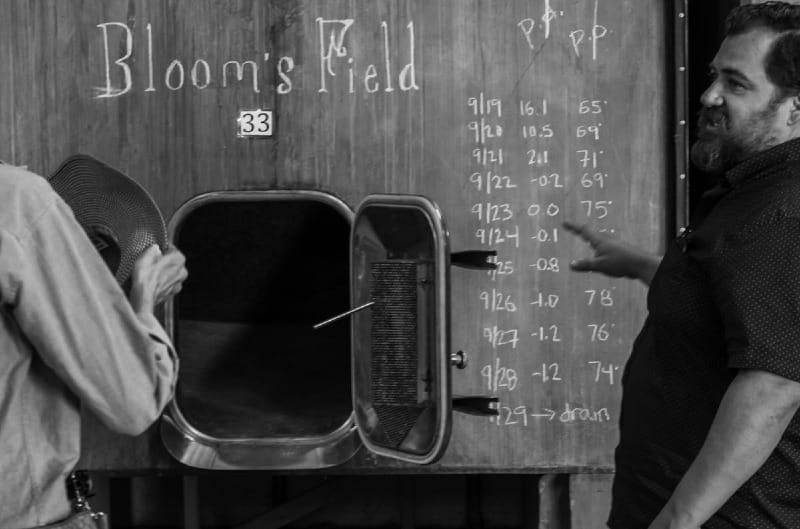 Bloom's Field
33
p.p. p.p.
9/19 16.1 65°
9/20 10.5 69°
9/21 2.1 71°
9/22 -0.2 69°
9/23 0.0 75°
9/24 -0.1
25 -0.8
9/26 -1.0 78°
9/27 -1.2 76°
9/28 -1.2 74°
29 → drain